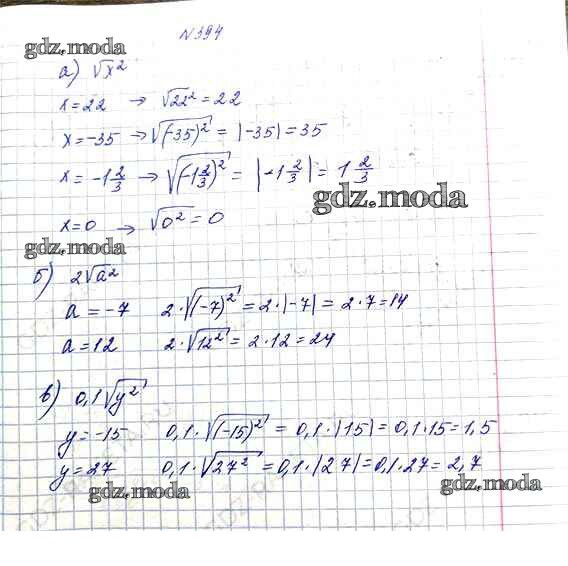 №394
gdz.moda
а) √x²
x=22 → √22² = 22
x=-35 → √(-35)² = |-35| = 35
x=-1 2/3 → √(-1 2/3)² = |-1 2/3| = 1 2/3
gdz.moda
x=0 → √0² = 0
gdz.moda
б) 2√a²
a=-7 2·√(-7)² = 2·|-7| = 2·7=14
a=12 2·√12² = 2·12=24
в) 0,1√y²
y=-15 0,1·√(-15)² = 0,1·|15| = 0,1·15=1,5
y=27 0,1·√27² = 0,1·|27| = 0,1·27=2,7
gdz.moda gdz.moda